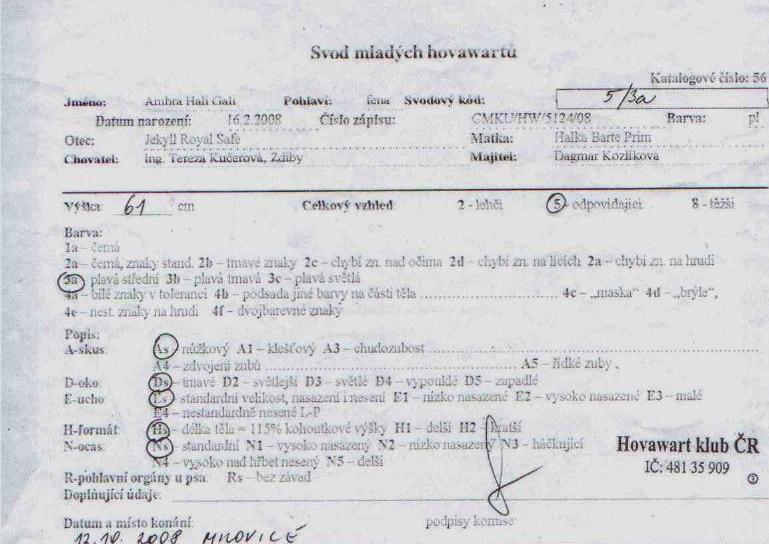 Svod mladých hovawartů
Katalogové číslo: 56
Jméno: Ambra Hali Gali Pohlaví: fena Svodový kód: 5/3a
Datum narození: 16.2.2008 Číslo zápisu: CMKU/HW/5124/08 Barva: pl
Otec: Jekyll Royal Safe Matka: Halka Barte Prim
Chovatel: ing. Tereza Kučerová, Zdiby Majitel: Dagmar Kozlíková
Výška 61 cm Celkový vzhled 2 - lehčí 5 - odpovídající 8 - těžší
Barva:
1a – černá
2a – černá, znaky stand. 2b – tmavé znaky 2c – chybí zn. nad očima 2d – chybí zn. na lících 2a – chybí zn. na hrudi
3a – plavá střední 3b – plavá tmavá 3c – plavá světlá
4a – bílé znaky v toleranci 4b – podsada jiné barvy na části těla 4c – „maska" 4d – „brýle",
4e – nest. znaky na hrudi 4f – dvojbarevné znaky
Popis:
A-skus: As – nůžkový A1 – klešťový A3 – chudozubost
A4 – zdvojení zubů A5 – řídké zuby
D-oko: Ds – tmavé D2 – světlejší D3 – světlé D4 – vypouklé D5 – zapadlé
E-ucho: Es – standardní velikost, nasazení i nesení E1 – nízko nasazené E2 – vysoko nasazené E3 – malé
E4 – nestandardně nesené L-P
H-formát: Hs – délka těla = 115% kohoutkové výšky H1 – delší H2 – kratší
N-ocas: Ns – standardní N1 – vysoko nasazený N2 – nízko nasazený N3 – háčkující
N4 – vysoko nad hřbet nesený N5 – delší
R-pohlavní orgány u psa: Rs – bez závad
Doplňující údaje:
Hovawart klub ČR
IČ: 481 35 909
Datum a místo konání: podpisy komise:
12.10. 2008 MILOVICE